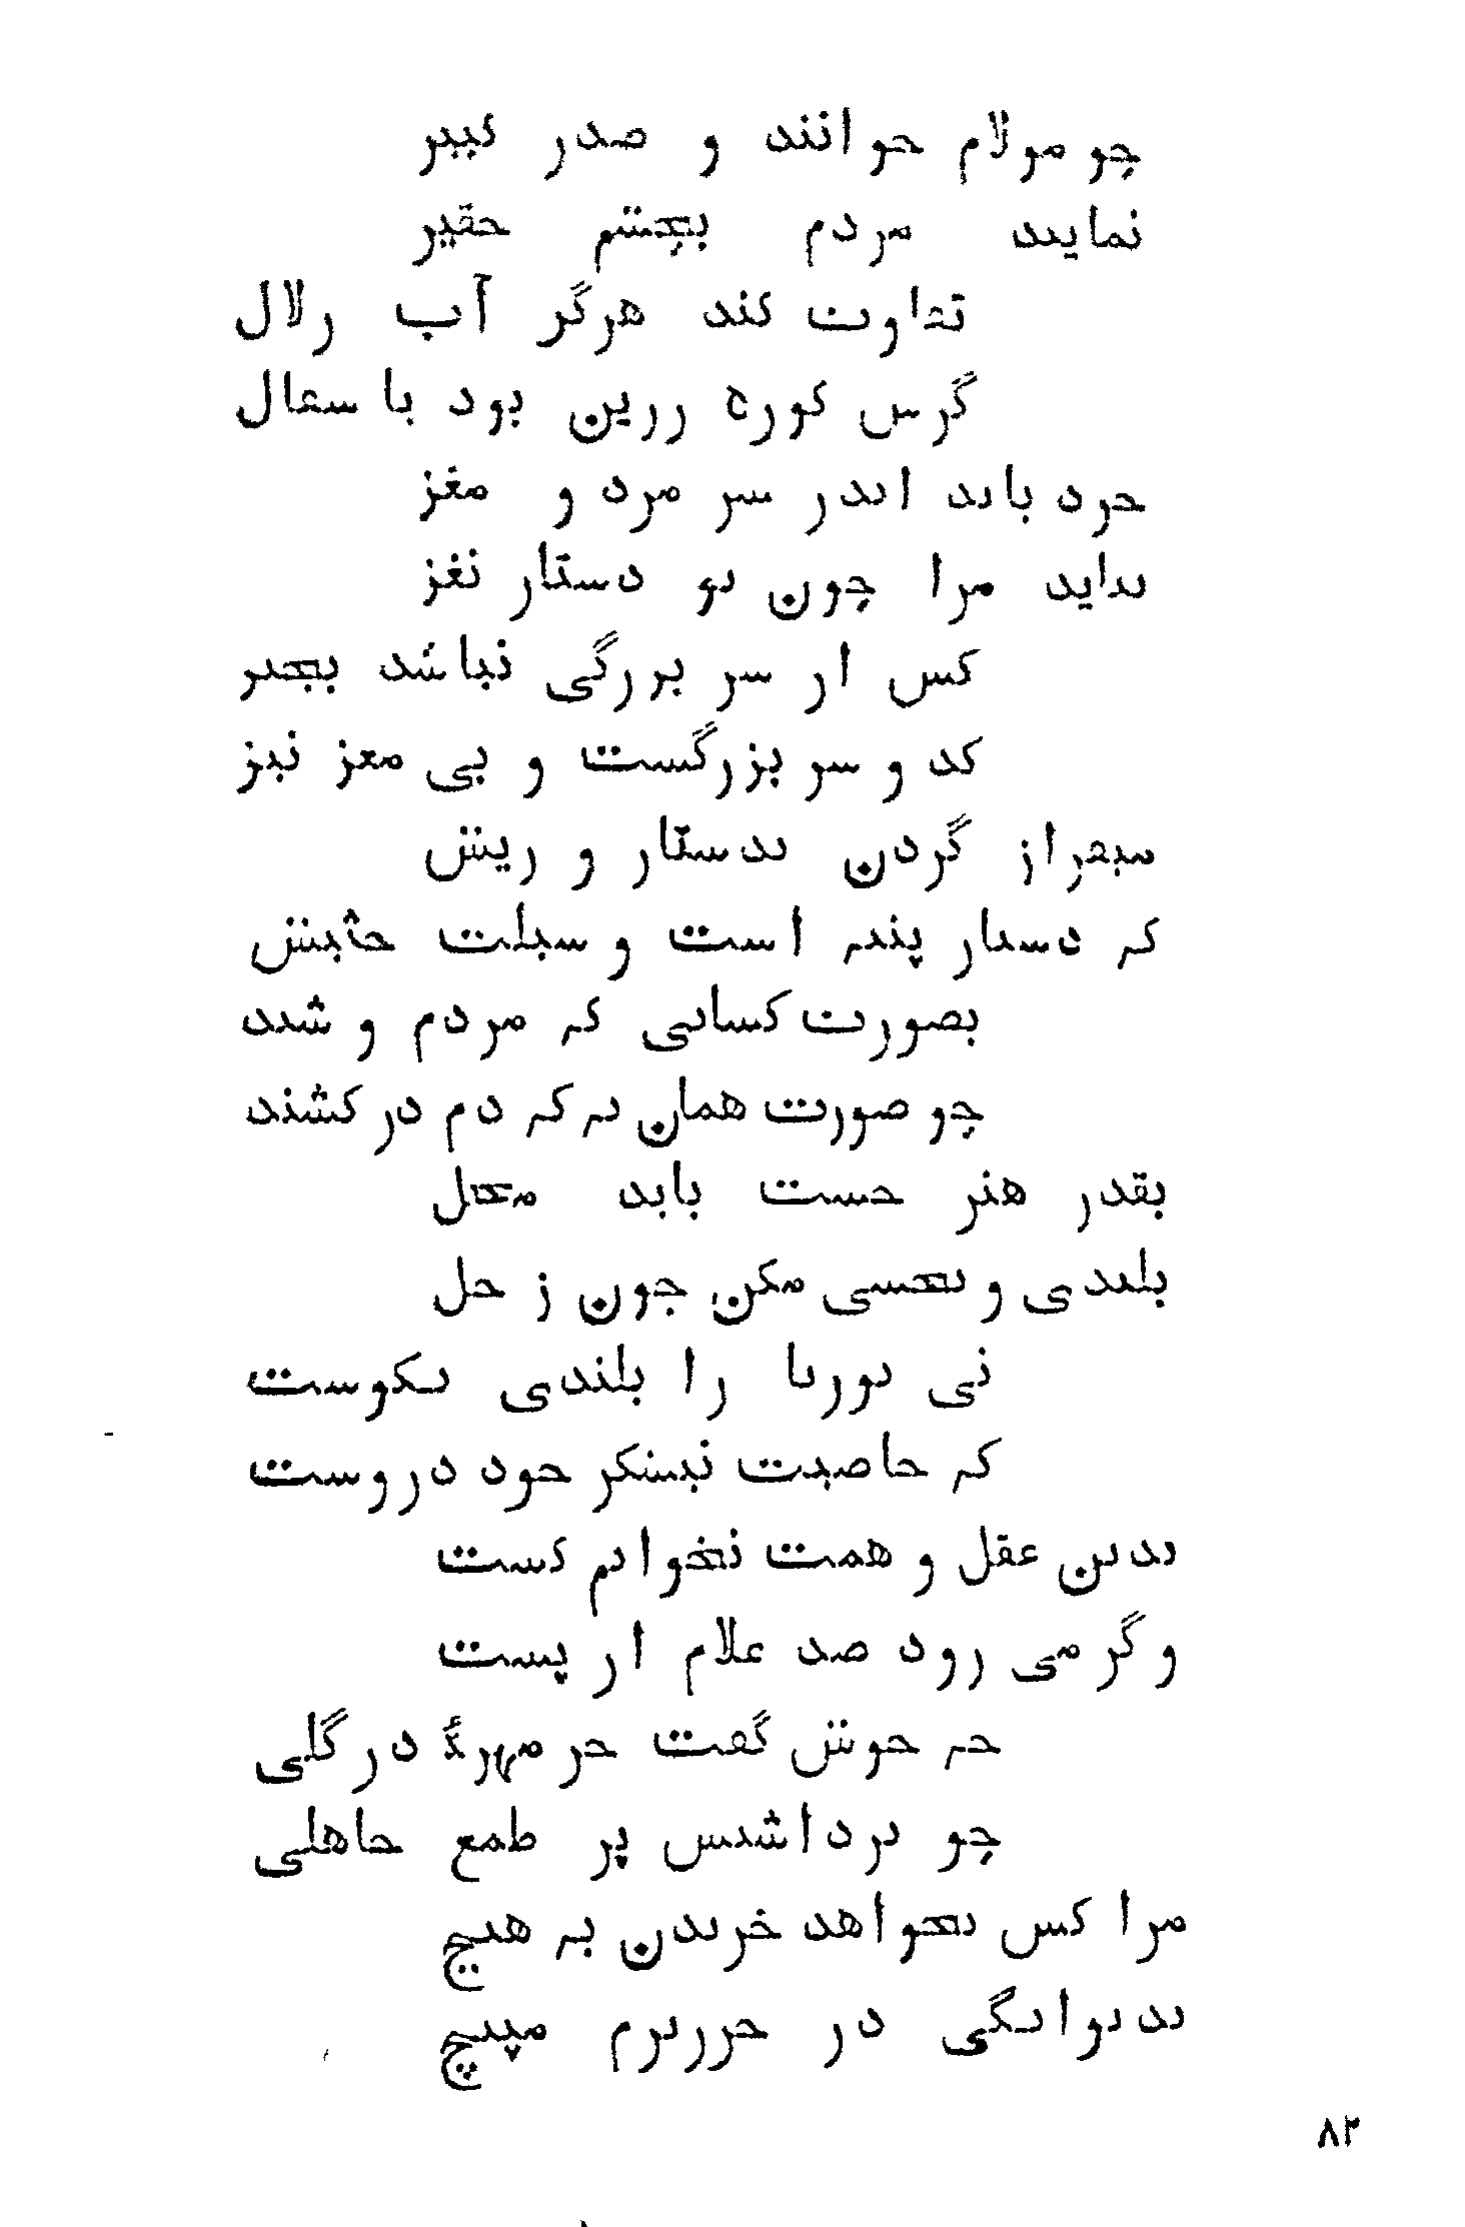 چو مولام خوانند و صدر کبیر
نمایند مردم بچشم حقیر
تفاوت کند هرگز آب زلال
گرش کوزه زرین بود یا سفال
خرد باید اندر سر مرد و مغز
نباید مرا چون تو دستار نغز
کس از سر بزرگی نباشد بچیز
کدو سر بزرگست و بی مغز نیز
میفراز گردن بدستار و ریش
که دستار پنبه است و سبلت حشیش
بصورت کسانی که مردم وشند
چو صورت همان به که دم درکشند
بقدر هنر جست باید محل
بلندی و نحسی مکن چون زحل
نی بوریا را بلندی نکوست
که خاصیت نیشکر خود دروست
بدین عقل و همت نخوانم کست
وگر می رود صد غلام از پست
چه خوش گفت خر مهرهٔ در گلی
چو برداشتش پر طمع جاهلی
مرا کس نخواهد خریدن به هیچ
بدیوانگی در حریرم مپیچ
۸۲